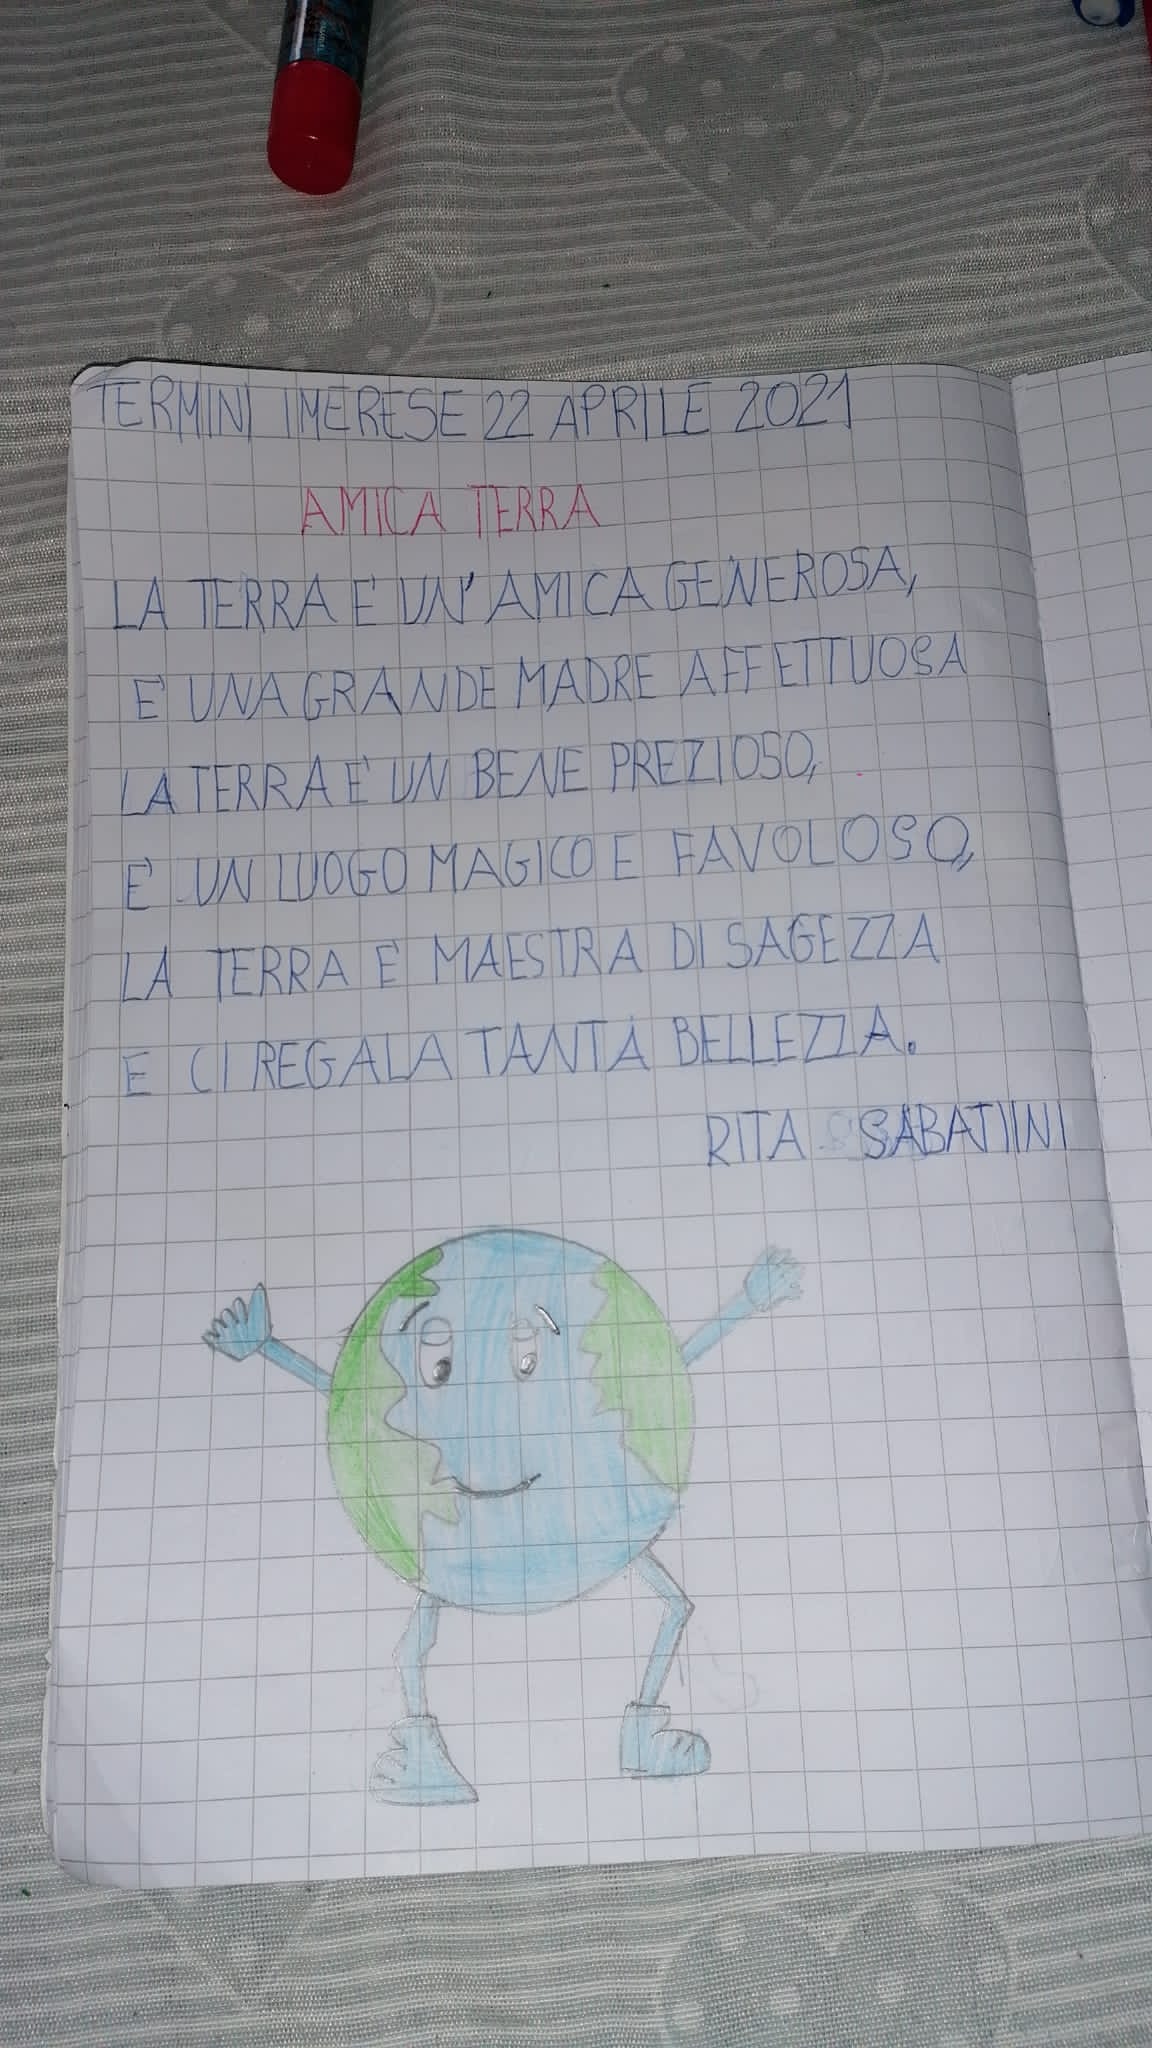 TERMINI IMERESE 22 APRILE 2021
AMICA TERRA
LA TERRA E' UN'AMICA GENEROSA,
E' UNA GRANDE MADRE AFFETTUOSA
LA TERRA E' UN BENE PREZIOSO,
E' UN LUOGO MAGICO E FAVOLOSO,
LA TERRA E' MAESTRA DI SAGEZZA
E CI REGALA TANTA BELLEZZA.
RITA SABATIINI